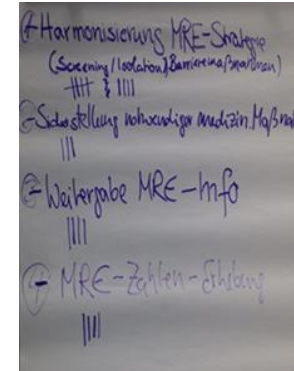 1 Harmonisierung MRE-Strategie
(Screening/Isolation, Barrieremaßnahmen)
2 Sicherstellung notwendiger medizin. Maßna
3 Weitergabe MRE-Info
4 MRE-Zahlen-Erhebung